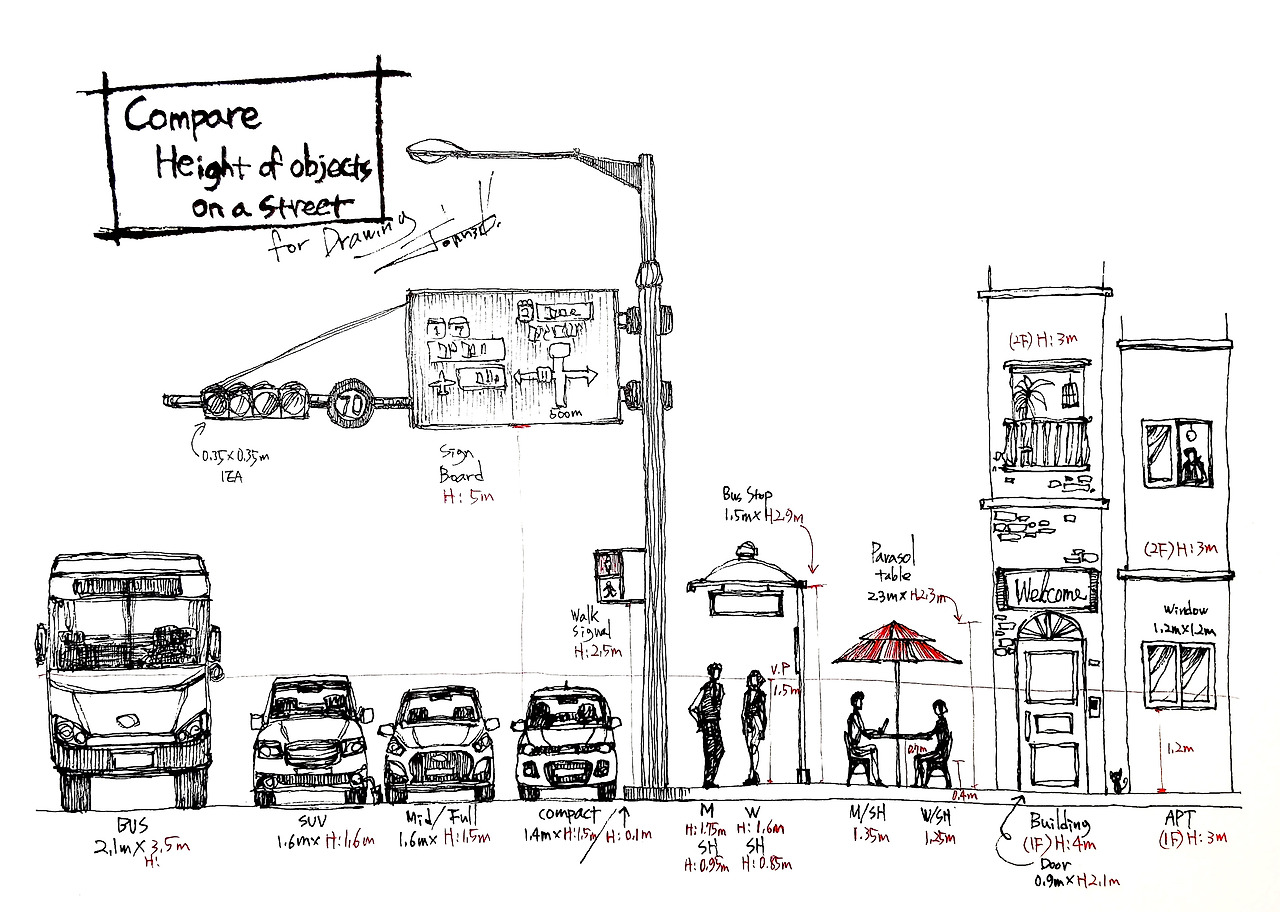 Compare
Height of objects
on a street
for Drawing
1 7
2
70
500m
0.35 x 0.35m
1EA
Sign
Board
H: 5m
Walk
Signal
H: 2.5m
Bus Stop
1.5m x H2.9m
Parasol
table
2.3m x H2.3m
V.P
1.5m
0.4m
(2F) H: 3m
Welcome
(2F) H: 3m
Window
1.2m x 1.2m
1.2m
BUS
2.1m x 3.5m
H:
SUV
1.6m x H:1.6m
Mid/Full
1.6m x H:1.5m
compact
1.4m x H:1.5m
H: 0.1m
M
H: 1.75m
SH
H: 0.95m
W
H: 1.6m
SH
H: 0.85m
M/SH
1.35m
W/SH
1.25m
Building
(1F) H: 4m
Door
0.9m x H2.1m
APT
(1F) H: 3m